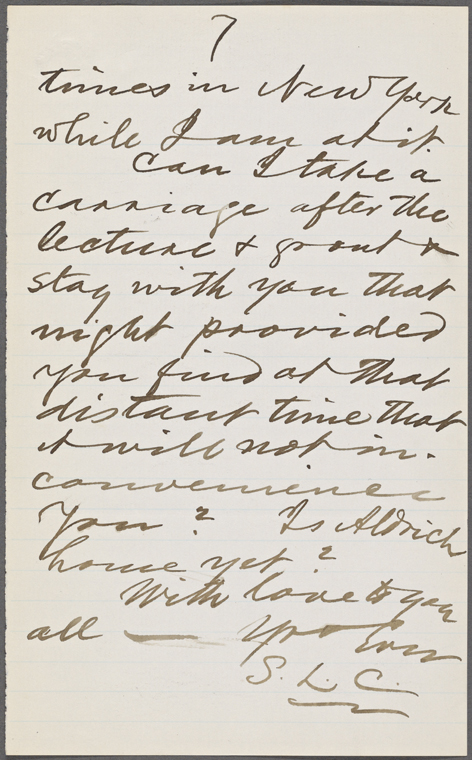 7
times in New York
while I am at it.
Can I take a
carriage after the
lecture & go out &
stay with you that
night, provided
you find at that
distant time that
it will not in-
convenience
you? Is Aldrich
home yet?
With love to you
all — Yrs Ever
S. L. C.